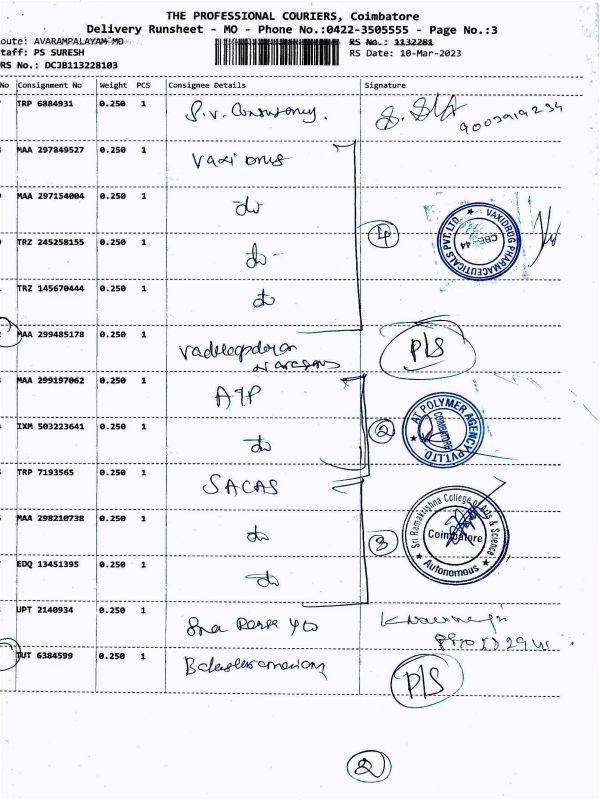 THE PROFESSIONAL COURIERS, Coimbatore
Delivery Runsheet - MO - Phone No.:0422-3505555 - Page No.:3
oute: AVARAMPALAYAM MO
RS No.: 1132281
taff: PS SURESH
RS Date: 10-Mar-2023
RS No.: DCJB113228103
No Consignment No Weight PCS Consignee Details Signature
TRP 6884931 0.250 1
MAA 297849527 0.250 1
MAA 297154004 0.250 1 do
4
VAXIDRUG PHARMACEUTICALS PVT. LTD.
CBE-44
TRZ 245258155 0.250 1 do
TRZ 145670444 0.250 1 do
MAA 299485178 0.250 1
P/S
MAA 299197062 0.250 1 ATP
2
AT POLYMER AGENCY PVT.LTD
COIMBATORE
IXM 503223641 0.250 1 do
TRP 7193565 0.250 1 SACAS
MAA 298210738 0.250 1 do
3
Sri Ramakrishna College of Arts & Science
Coimbatore
Autonomous
EDQ 13451395 0.250 1 do
UPT 2140934 0.250 1
TUT 6384599 0.250 1
P/S
2